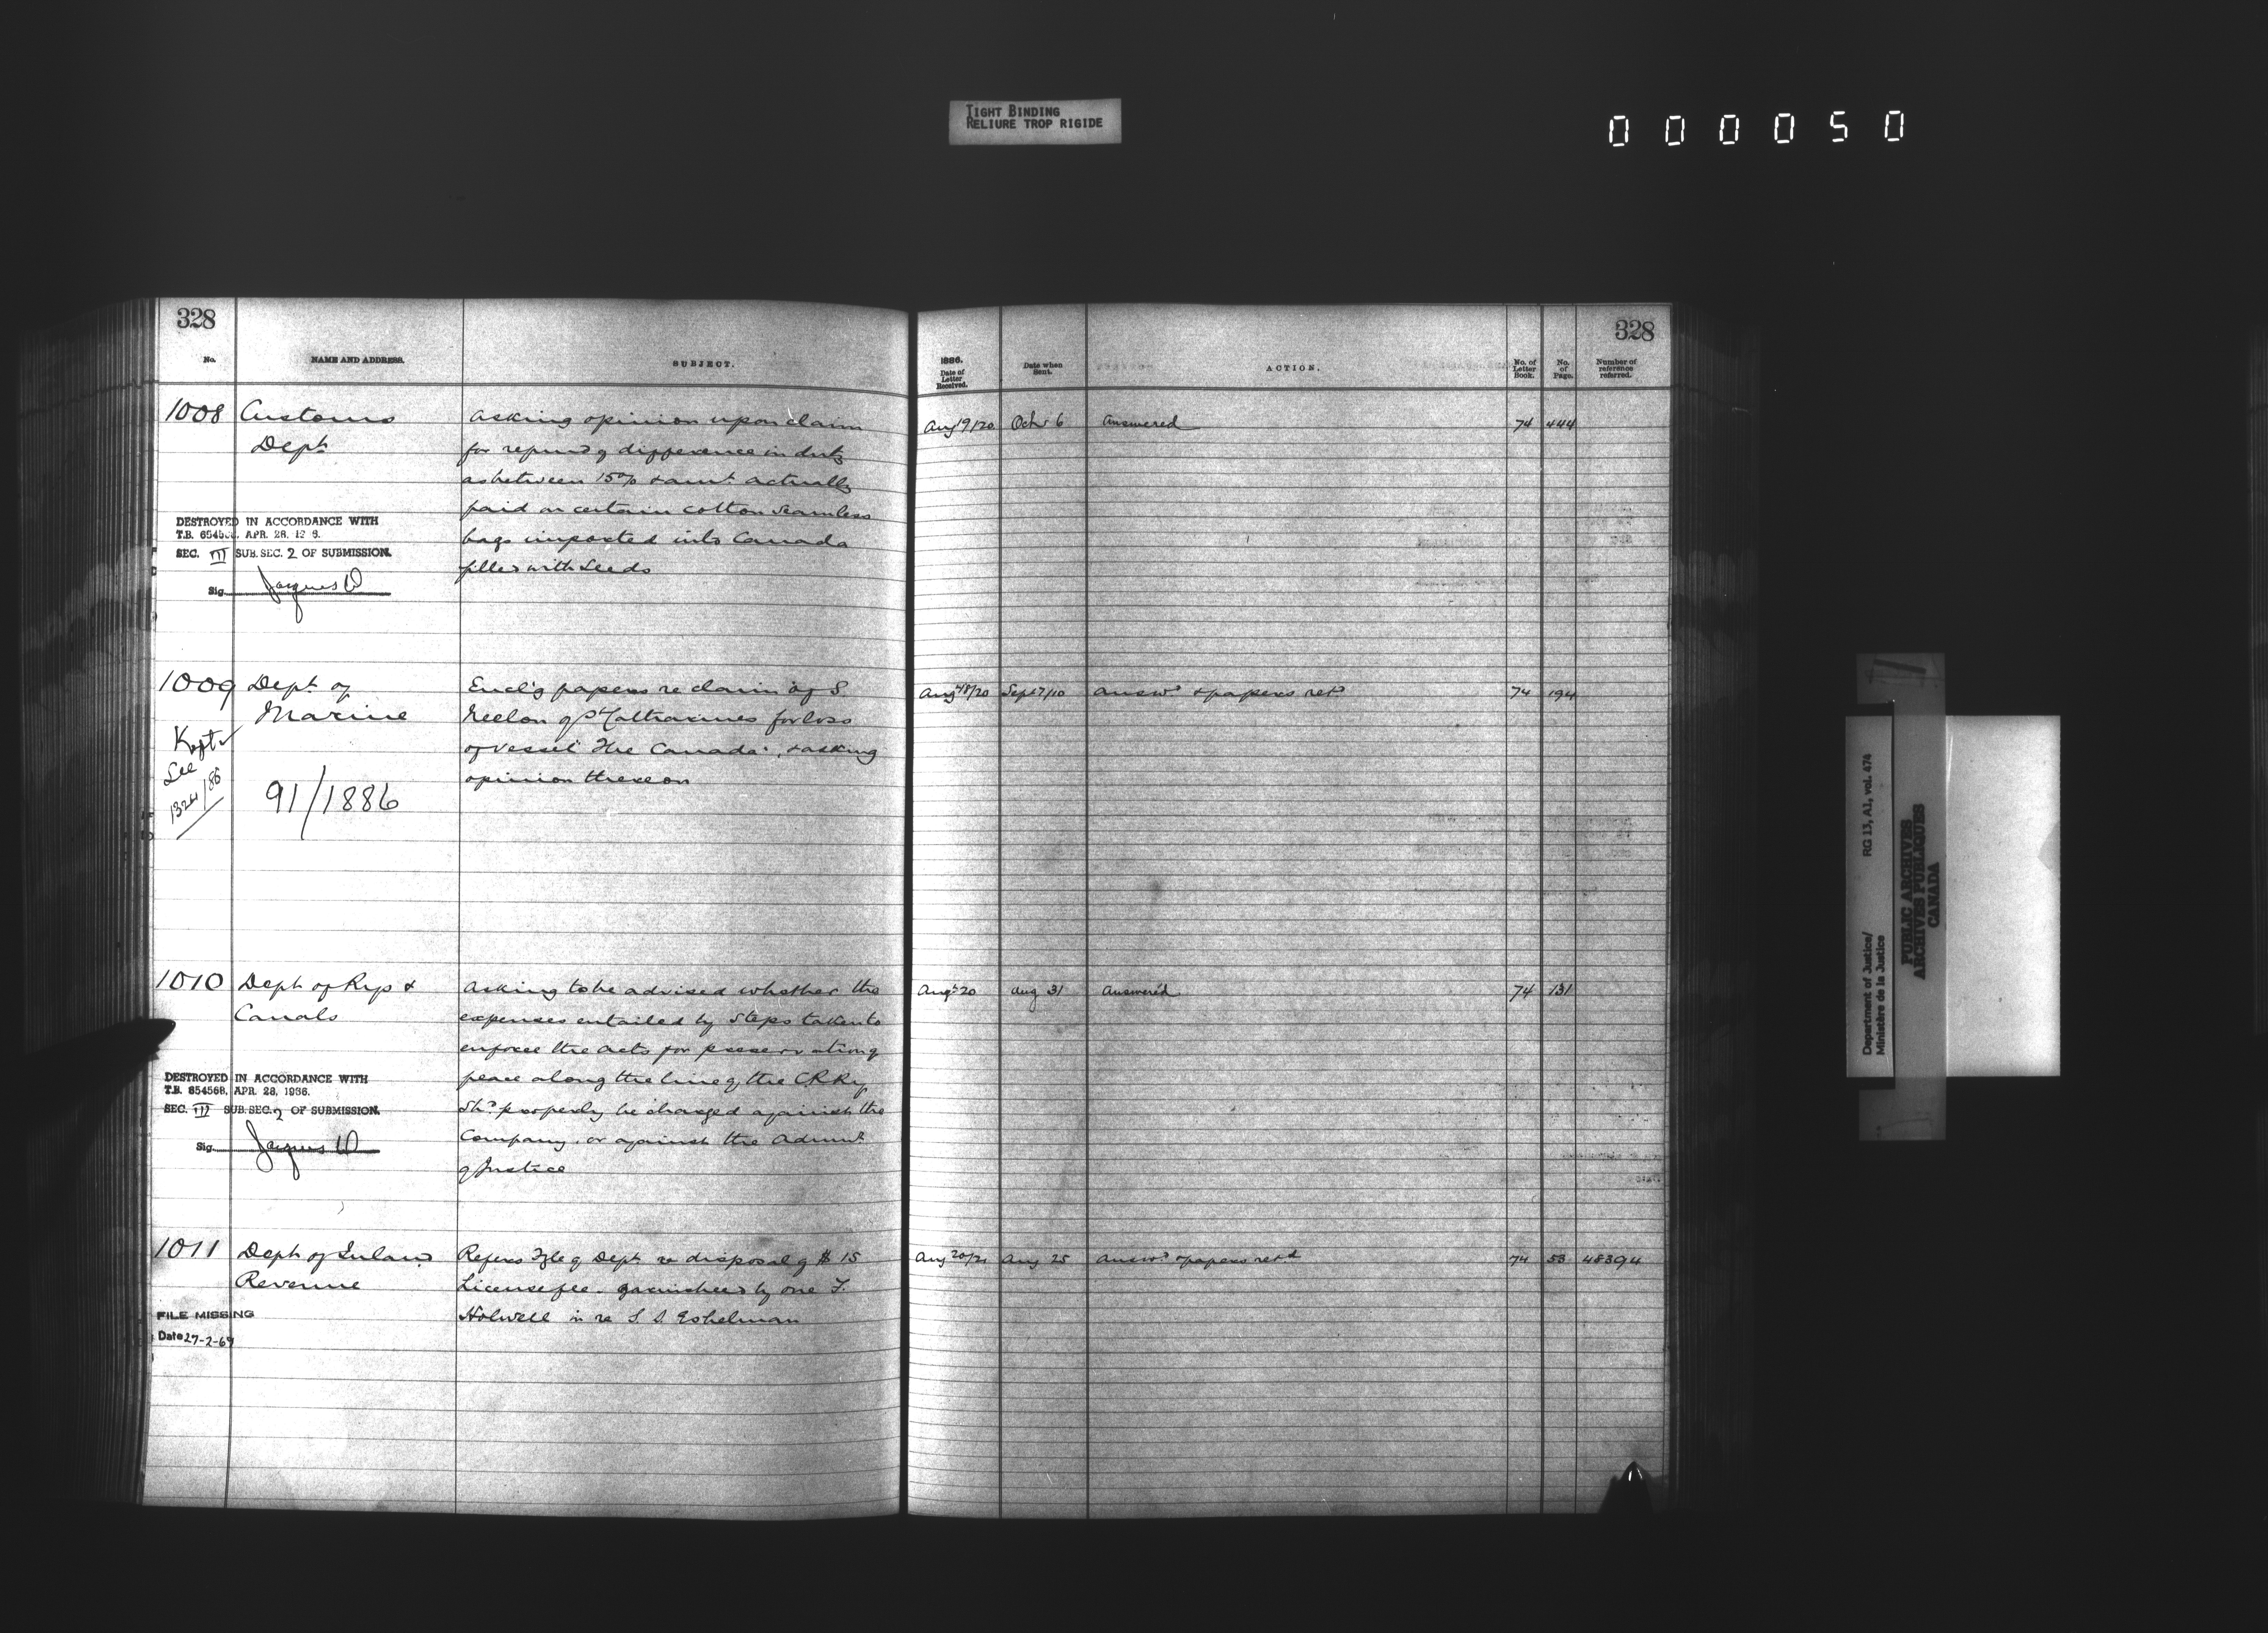 TIGHT BINDING
RELIURE TROP RIGIDE
000050
328
No.
NAME AND ADDRESS.
SUBJECT.
1008 Customs
Dept
asking opinion upon claim
for refund of difference in duty
as between 15% & amt actually
paid on certain cotton seamless
bags imported into Canada
filled with Seeds
DESTROYED IN ACCORDANCE WITH
T.B. APR. 28,
SEC. III SUB. SEC. 2 OF SUBMISSION.
Sig. Jacques
1009 Dept of
Marine
Encl'g papers re claim of S.
Neelon of St Catharines for loss
of vessel "The Canada", & asking
opinion thereon
Kept
See
1324/86
91/1886
1010 Dept of Rys &
Canals
Asking to be advised whether the
expenses entailed by steps taken to
enforce the Acts for preservation of
peace along the line of the C.P.Ry
shd properly be charged against the
Company, or against the Admn
of Justice
DESTROYED IN ACCORDANCE WITH
T.B. 654568, APR. 28, 1936.
SEC. III SUB. SEC. 2 OF SUBMISSION.
Sig. Jacques
1011 Dept of Inland
Revenue
Refers Fyle of Dept re disposal of $15
License fee, garnisheed by one F.
Holwell in re S S Eshelman
FILE MISSING
Date 27-2-69
328
1886.
Date of
Letter
Received.
Date when
Sent.
ACTION.
No. of
Letter
Book.
No.
of
Page.
Number of
reference
referred.
Aug 19/20 Octr 6 Answered 74 444
Augt 18/20 Sept 7/10 Answd & papers retd 74 194
Augt 20 Aug 31 Answered 74 131
Aug 20/21 Aug 25 Answd & papers retd 74 53 48394
Department of Justice/ RG 13, A1, vol. 474
Ministère de la Justice
PUBLIC ARCHIVES
ARCHIVES PUBLIQUES
CANADA